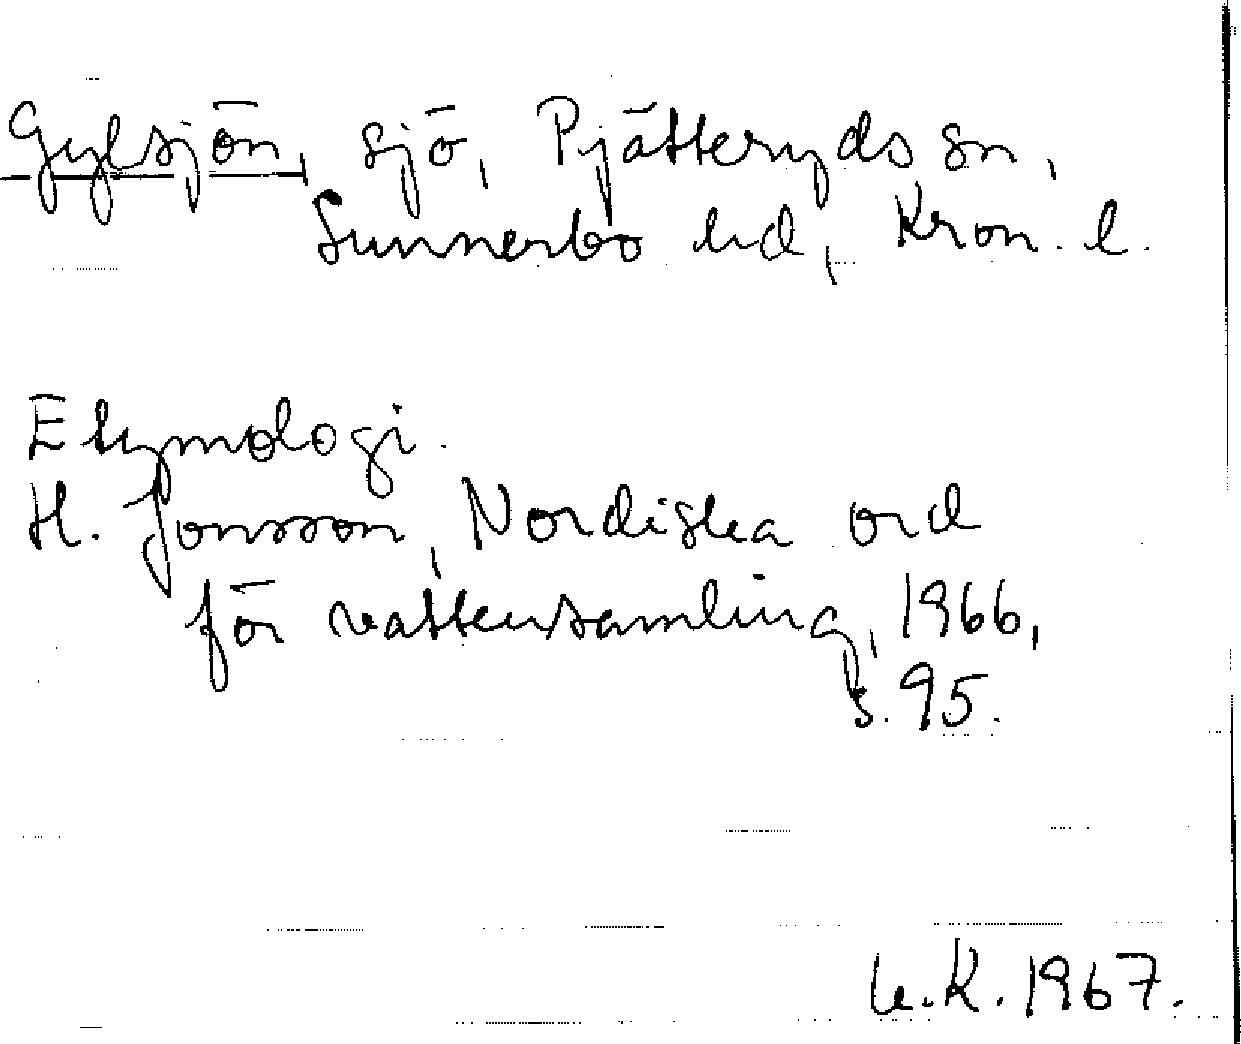 Gylsjön, sjö, Pjätteryds sn,
Sunnerbo hd, Kron. l.
Etymologi.
H. Jonsson, Nordiska ord
för vattensamling, 1966,
s. 95.
U.K. 1967.